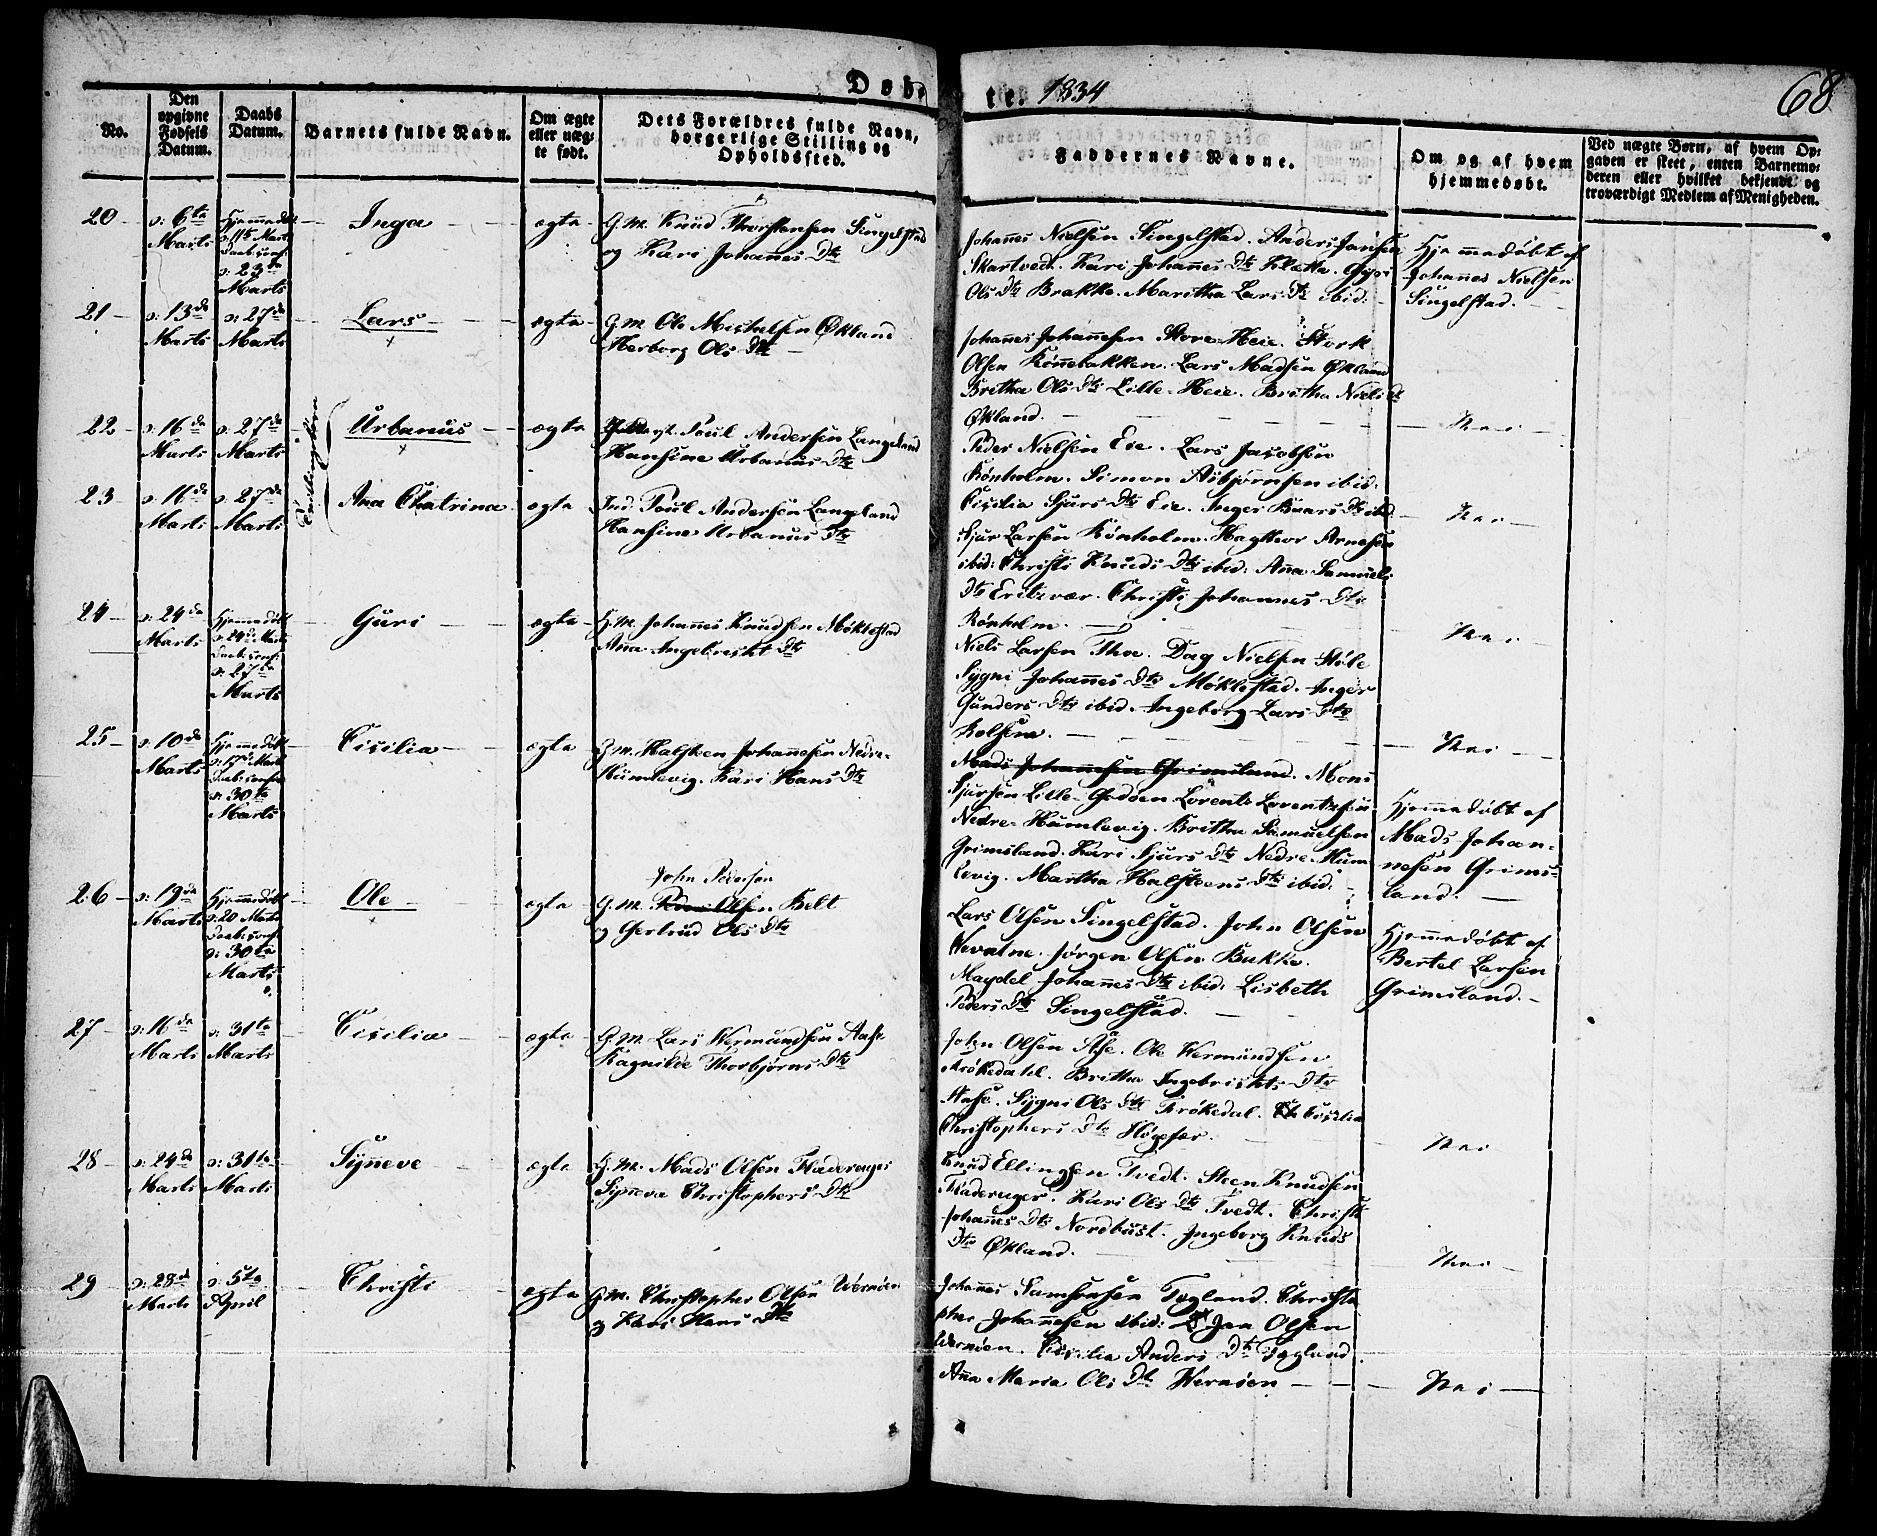 Døbte. 1834
68
No.
Den opgivne Fødsels Datum.
Daabs Datum.
Barnets fulde Navn.
Om ægte eller uægte født.
Dets Forældres fulde Navn, borgerlige Stilling og Opholdssted.
Faddernes Navne.
Om og af hvem hjemmedøbt.
Ved uægte Børn, af hvem Opgaven er skeet, enten Barnemoderen eller hvilket bekjendt og troværdigt Medlem af Menigheden.
20
d: 6te Marts
Hjemmedøbt
Marts
d: 23de
Marts
Inga
ægte
G. M. Knud Thorstensen Singelstad
og Kari Johannes Dtr
Johannes Nielsen Singelstad. Anders Jansen
Skartvedt. Kari Johannes Dtr Klætte. Guri
Ols Dtr Brekke. Maritha Lars Dtr ibid.
Hjemmedøbt af
Johannes Nielsen
Singelstad.
21
d: 13de Marts
d: 27de Marts
Lars
ægte
G. M. Ole Michelsen Økland
Herborg Ols Dtr
Johannes Johannesen Store-Heie.
Olsen Rønnebakken. Lars Madsen Økland
Bretha Ols Dtr Lille-Heie. Britha Niels Dtr
Økland.
Nei
22
d: 16de Marts
d: 27de Marts
Tvillingebørn
Urbanus
ægte
Poul Andersen Langeland
Hansine Urbanus Dtr
Peder Nielsen Eie. Lars Jacobsen
Rønholm. Simon Asbjørnsen ibid.
Cicilia Sjurs Dtr Eie. Inger Dtr ibid
Nei
23
d: 16de Marts
d: 27de Marts
Ana Chatrina
ægte
Ind. Poul Andersen Langeland
Hansine Urbanus Dtr
Sjur Larsen Rønholm. Arnesen
ibid: Christi Knuds Dtr ibid: Ana Samuels
Dtr Eritzvær. Christi Johannes Dtr
Rønholm.
Nei
24
d: 24de Marts
Hjemmedøbt
d: 24de Marts
d: 27de
Marts
Guri
ægte
G. M. Johannes Knudsen Møklestad
Ana Ingebrecht Dtr
Niels Larsen Thoe. Dag Nielsen Støle
Sygni Johannes Dtr Møklestad. Inger
Gunders Dtr ibid. Ingeborg Lars Dtr
Kolsene.
Nei
25
d: 10de Marts
Hjemmedøbt
Marts
d: 30te
Marts
Cicilia
ægte
G. M. Halsteen Johannesen Nedre-
Humlevig. Kari Hans Dtr
Mads Johannesen Grimsland. Mons
Sjursen Lille-Godøen Lorents Lorentzsen
Nedre-Humlevig. Britha Samuelsen
Grimsland. Kari Sjurs Dtr Nedre-Hum
levig. Martha Halsteens Dtr ibid.
Hjemmedøbt af
Mads Johan-
nesen Grims-
land.
26
d: 19de Marts
Hjemmedøbt
d: 20 Marts
d: 30te
Marts
Ole
ægte
John Pedersen
G. M. Peder Olsen Belt
og Gertrud Ols Dtr
Lars Olsen Singelstad. John Olsen
Vevatne. Jørgen Olsen Bukke.
Magdel Johannes Dtr ibid: Lisbeth
Peders Dtr Singelstad.
Hjemmedøbt af
Bertel Larsen
Grimsland.
27
d: 16de Marts
d: 31te Marts
Cicilia
ægte
G. M. Lars Wermundsen Aase
Ragnilde Thorbjørns Dtr
John Olsen Ase. Ole Wermundsen
Krøkedahl. Britha Ingebrichts Dtr
Aase. Sygni Ols Dtr Krøkedal. Cicilia
Christophers Dtr
Nei
28
d: 24de Marts
d: 31te Marts
Synneve
ægte
G. M. Mads Olsen Fladerager
Synneva Christophers Dtr
Knud Ellingsen Tvedt. Steen Knudsen
Fladerager. Kari Ols Dtr Tvedt. Christi
Johannes Dtr Nordhust. Ingeborg Knuds
Dtr Økland.
Nei
29
d: 28de Marts
d: 5te April
Christi
ægte
G. M. Christopher Olsen Wernøen
og Kari Hans Dtr
Johannes Samsonsen Fogland. Christo
pher Johannesen ibid: Jan Olsen
Wernøen. Cicilia Anders Dtr Fogland.
Anna Maria Ols Dtr Wernøen
Nei